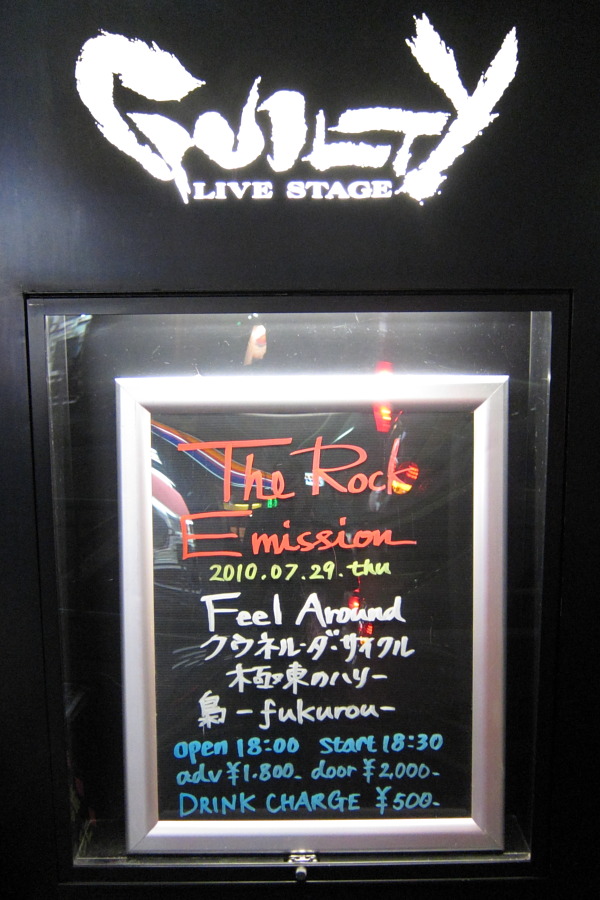 GUILTY
LIVE STAGE
The Rock
Emission
2010.07.29.thu
Feel Around
クウネル・ダ・サイクル
極東のハリー
梟-fukurou-
open 18:00 start 18:30
adv ¥1.800- door ¥2,000-
DRINK CHARGE ¥500-